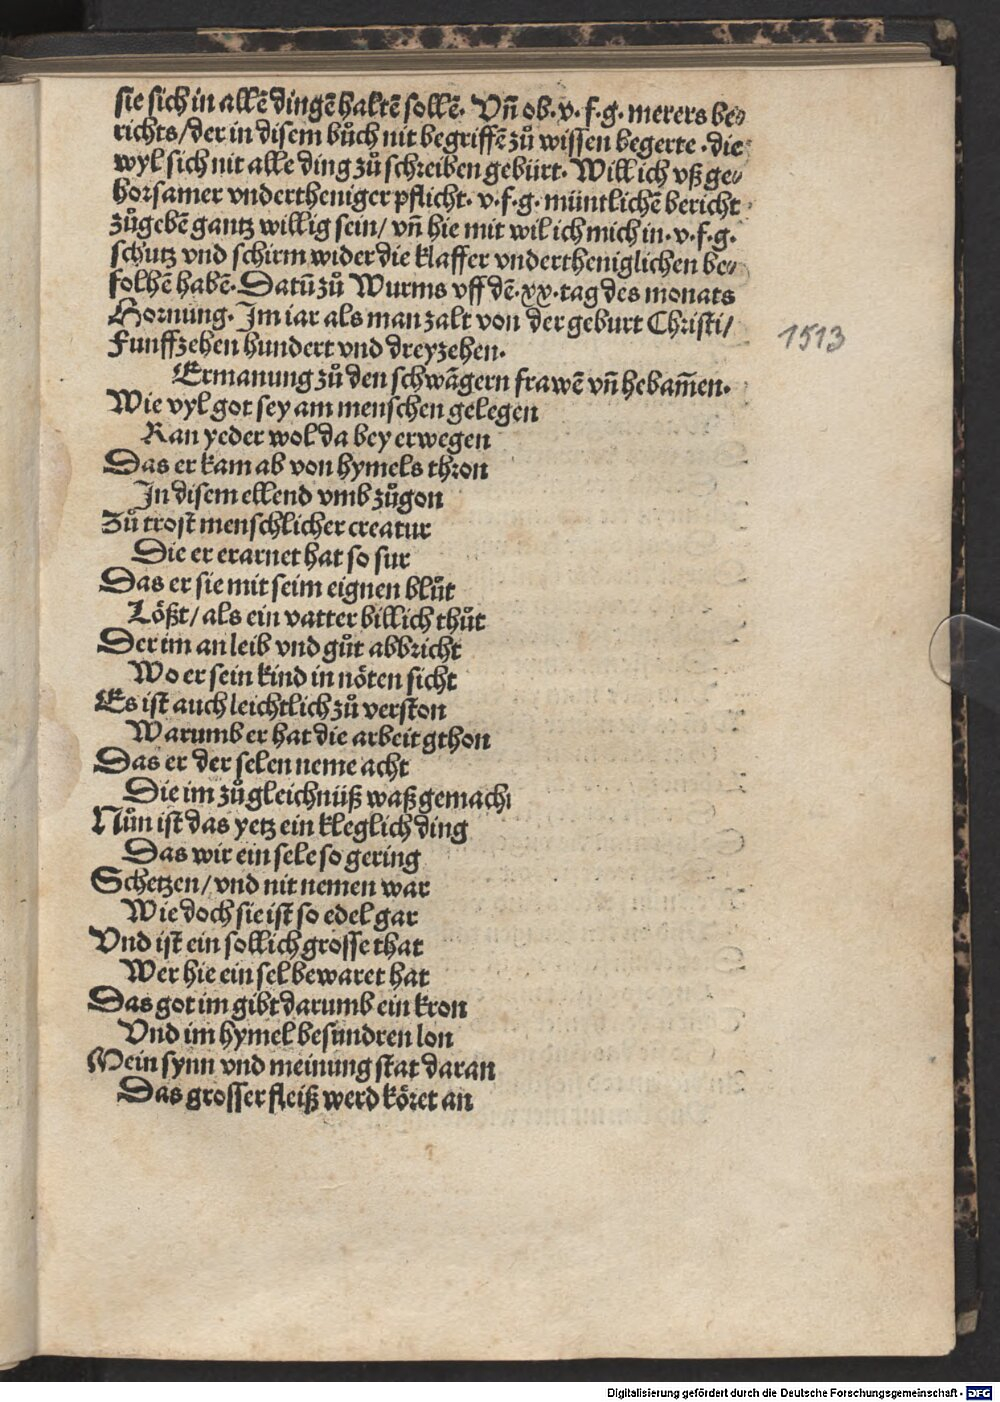 sie sich in allē dingē haltē sollē. Vn̄ ob. v. f. g. merers be⸗
richts/ der in disem bůch nit begriffē zů wissen begerte. die
wyl sich nit alle ding zů schreiben gebürt. Will ich vß ge⸗
horsamer vndertheniger pflicht. v. f. g. müntlichē bericht
zůgebē gantz willig sein/ vn̄ hie mit wil ich mich in. v. f. g.
schutz vnd schirm wider die klaffer vndertheniglichen be⸗
folhē habē. Datū zů Wurms vff dē. xx. tag des monats
Hornung. Im iar als man zalt von der geburt Christi/
Funffzehen hundert vnd dreyzehen.
1513
Ermanung zů den schwāgern frawē vn̄ hebam̄en.
Wie vyl got sey am menschen gelegen
Kan yeder wol da bey erwegen
Das er kam ab von hymels thron
In disem ellend vmb zůgon
Zů trost menschlicher creatur
Die er erarnet hat so sur
Das er sie mit seim eignen blůt
Lößt/ als ein vatter billich thůt
Der im an leib vnd gůt abbricht
Wo er sein kind in nöten sicht
Es ist auch leichtlich zů verston
Warumb er hat die arbeit gthon
Das er der selen neme acht
Die im zů gleichnüß waß gemacht
Nůn ist das yetz ein kleglich ding
Das wir ein sele so gering
Schetzen/ vnd nit nemen war
Wie doch sie ist so edel gar
Vnd ist ein sollich grosse that
Wer hie ein sel bewaret hat
Das got im gibt darumb ein kron
Vnd im hymel besundren lon
Mein synn vnd meinung stat daran
Das grosser fleiß werd köret an
Digitalisierung gefördert durch die Deutsche Forschungsgemeinschaft - DFG